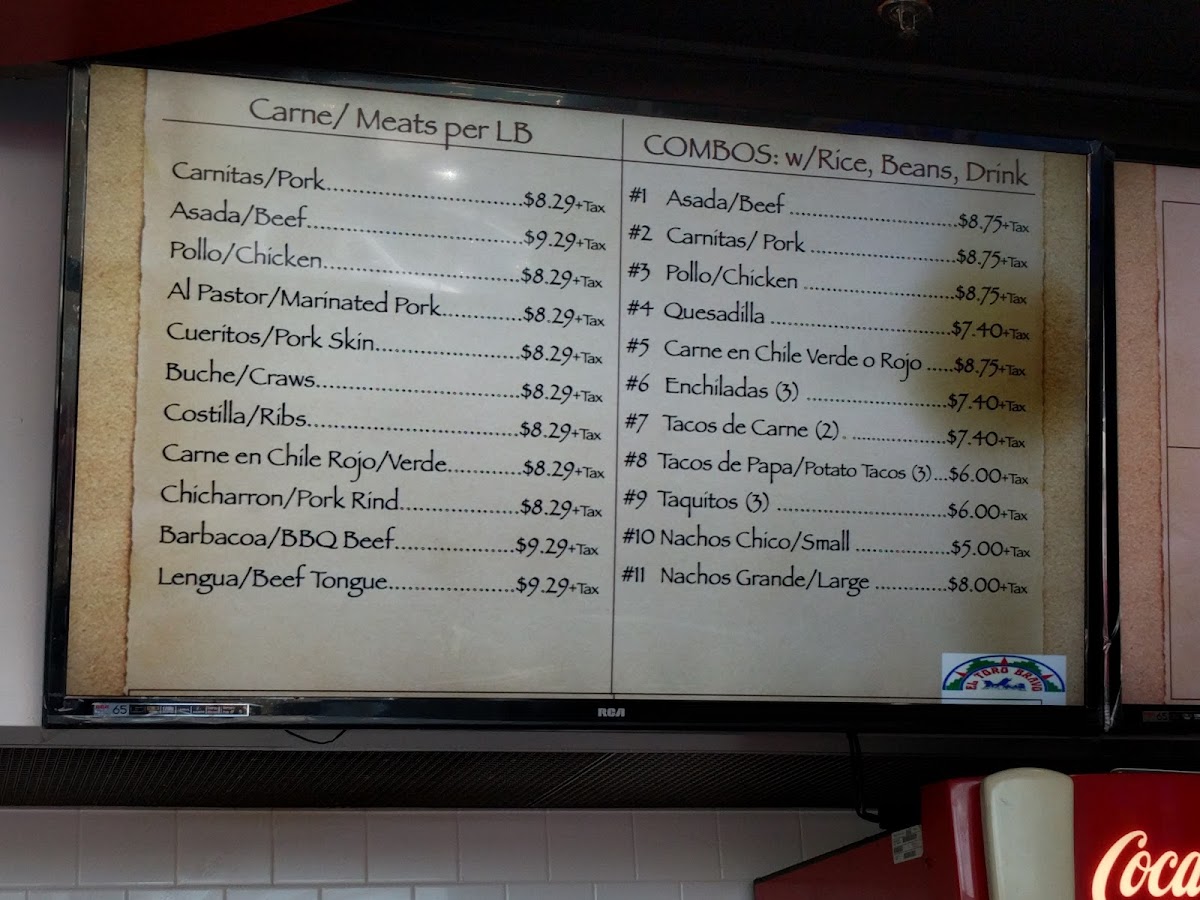 Carne/ Meats per LB
Carnitas/Pork.......................................$8.29+Tax
Asada/Beef...........................................$9.29+Tax
Pollo/Chicken.......................................$8.29+Tax
Al Pastor/Marinated Pork...............$8.29+Tax
Cueritos/Pork Skin............................$8.29+Tax
Buche/Craws........................................$8.29+Tax
Costilla/Ribs.........................................$8.29+Tax
Carne en Chile Rojo/Verde..............$8.29+Tax
Chicharron/Pork Rind.......................$8.29+Tax
Barbacoa/BBQ Beef.......................$9.29+Tax
Lengua/Beef Tongue........................$9.29+Tax
COMBOS: w/Rice, Beans, Drink
#1 Asada/Beef ................................$8.75+Tax
#2 Carnitas/ Pork ...........................$8.75+Tax
#3 Pollo/Chicken ............................$8.75+Tax
#4 Quesadilla ..................................$7.40+Tax
#5 Carne en Chile Verde o Rojo .....$8.75+Tax
#6 Enchiladas (3) ..........................$7.40+Tax
#7 Tacos de Carne (2). .................$7.40+Tax
#8 Tacos de Papa/Potato Tacos (3)...$6.00+Tax
#9 Taquitos (3) ...............................$6.00+Tax
#10 Nachos Chico/Small .................$5.00+Tax
#11 Nachos Grande/Large .............$8.00+Tax
EL TORO BRAVO
65
RCA
65
Coca